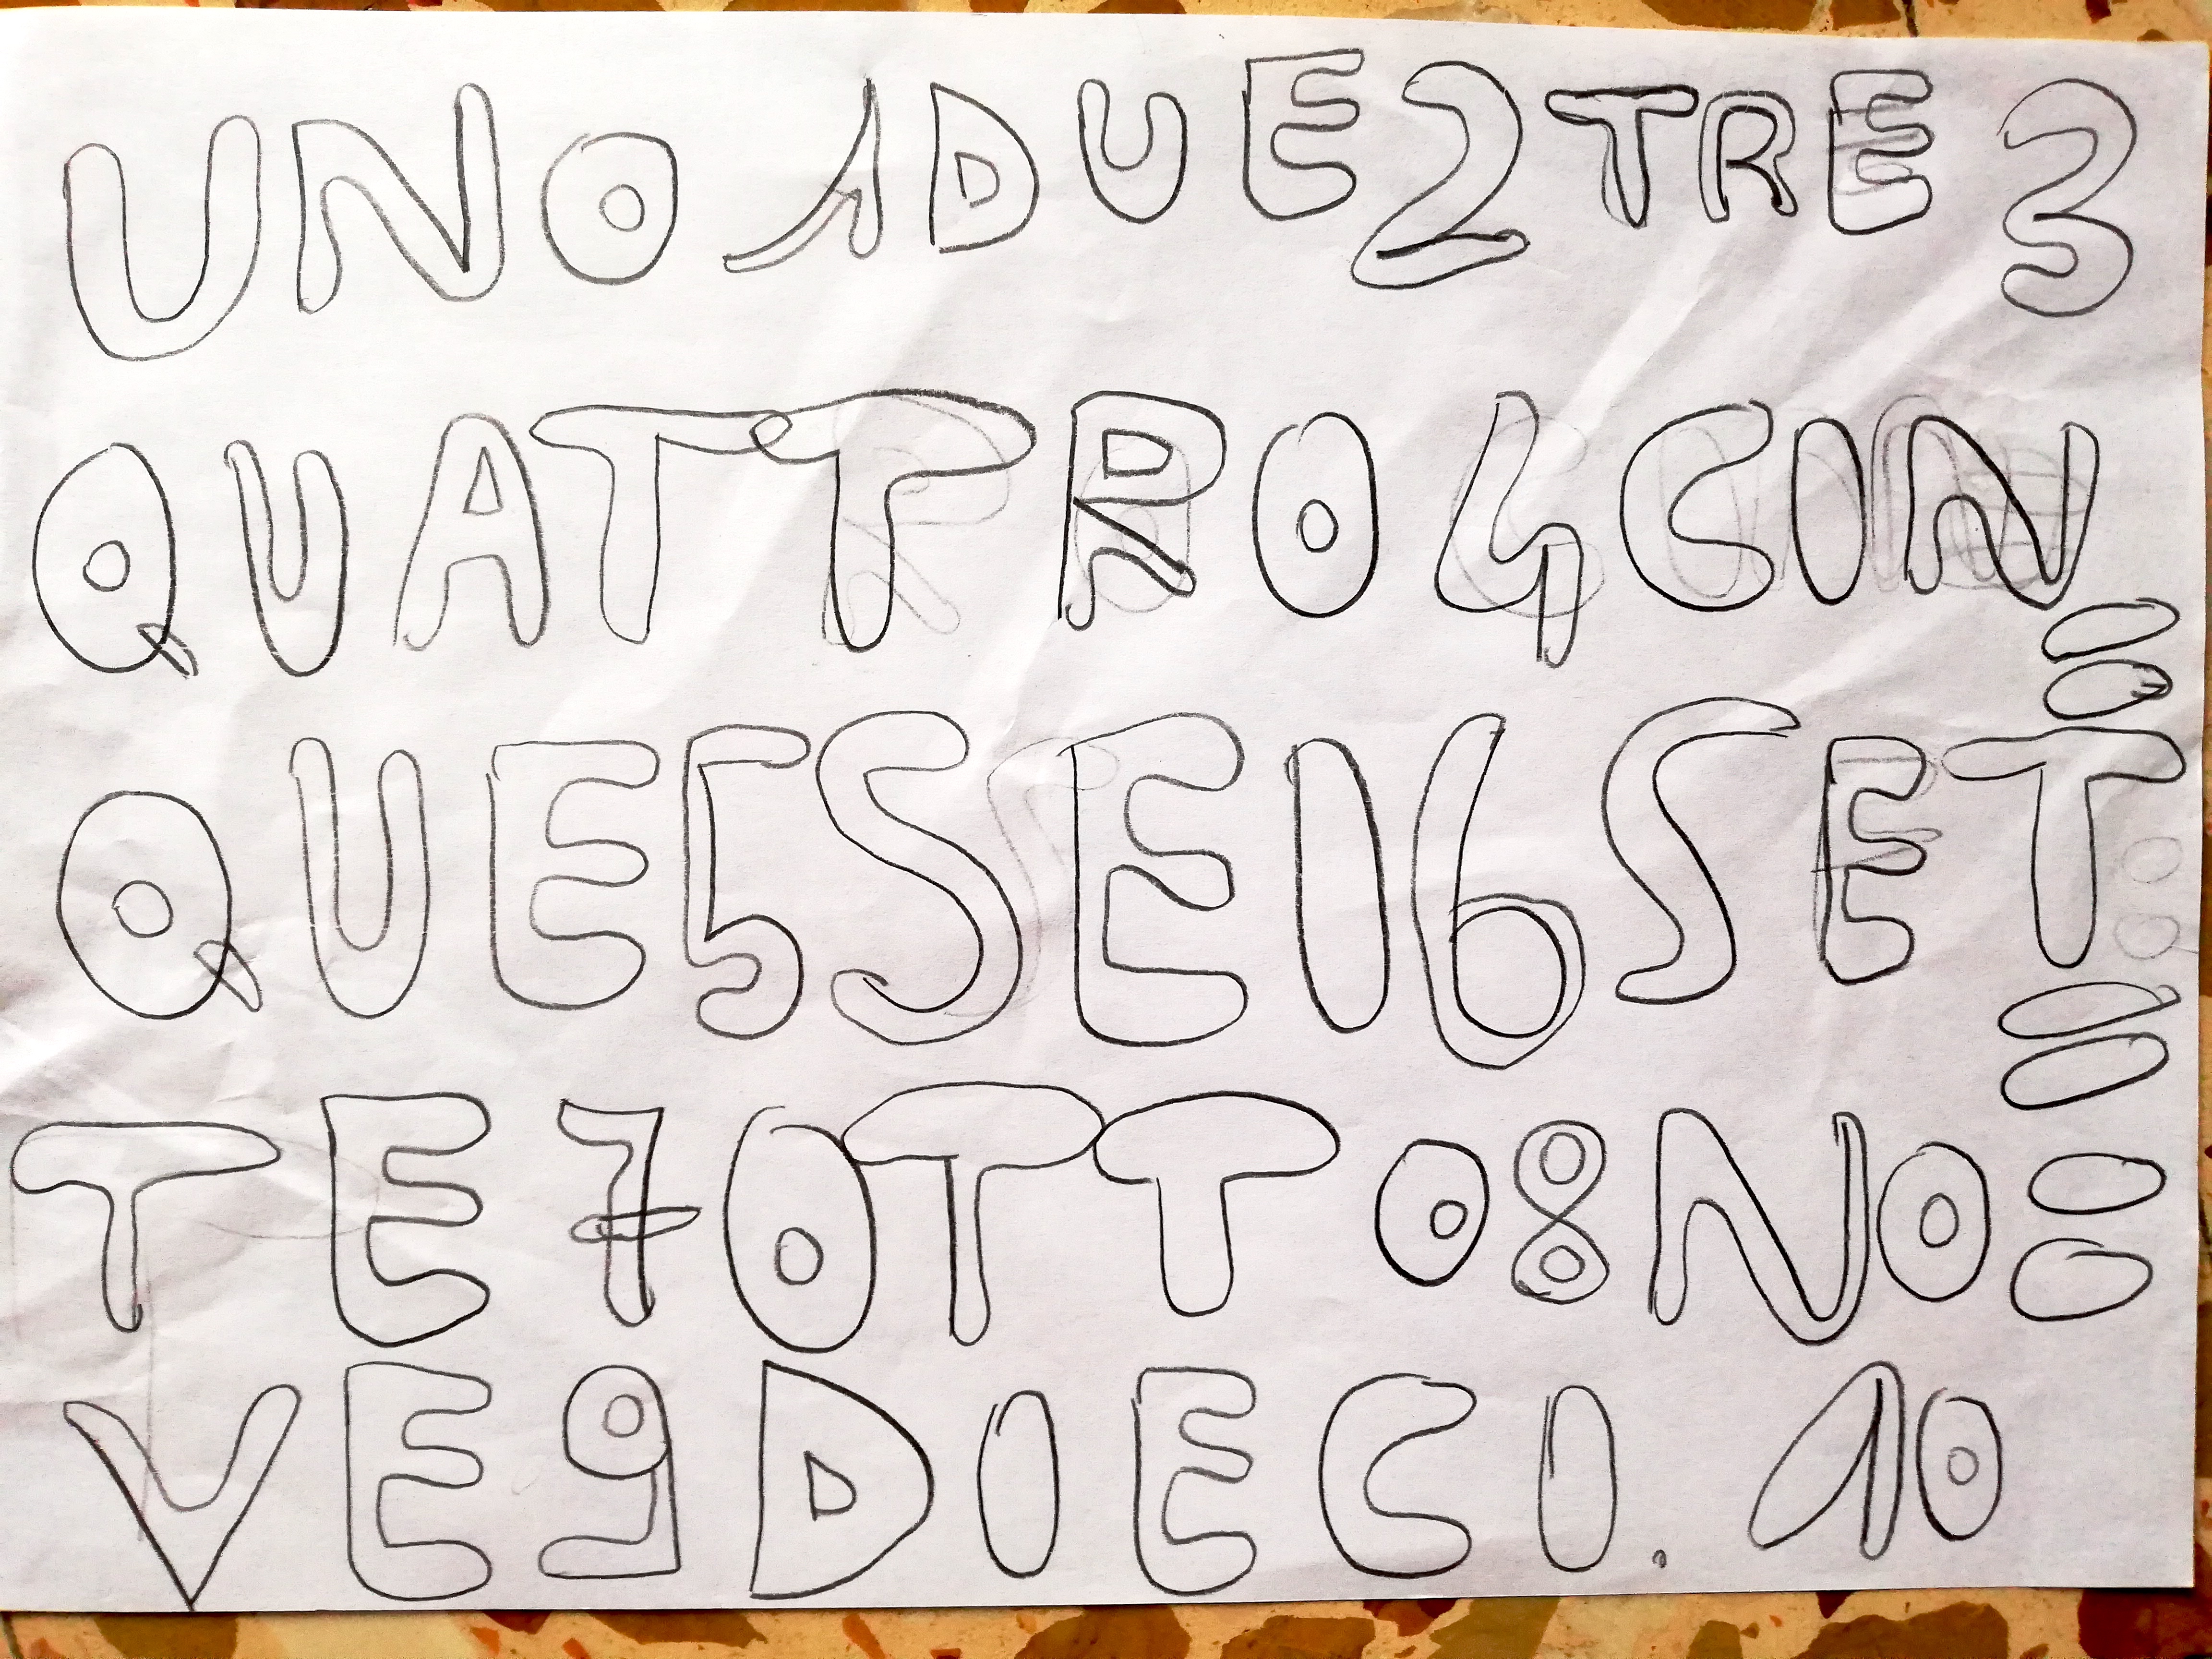 UNO 1 DUE 2 TRE 3
QUATTRO 4 CIN=
QUE 5 SEI 6 SET=
TE 7 OTTO 8 NO=
VE 9 DIECI. 10